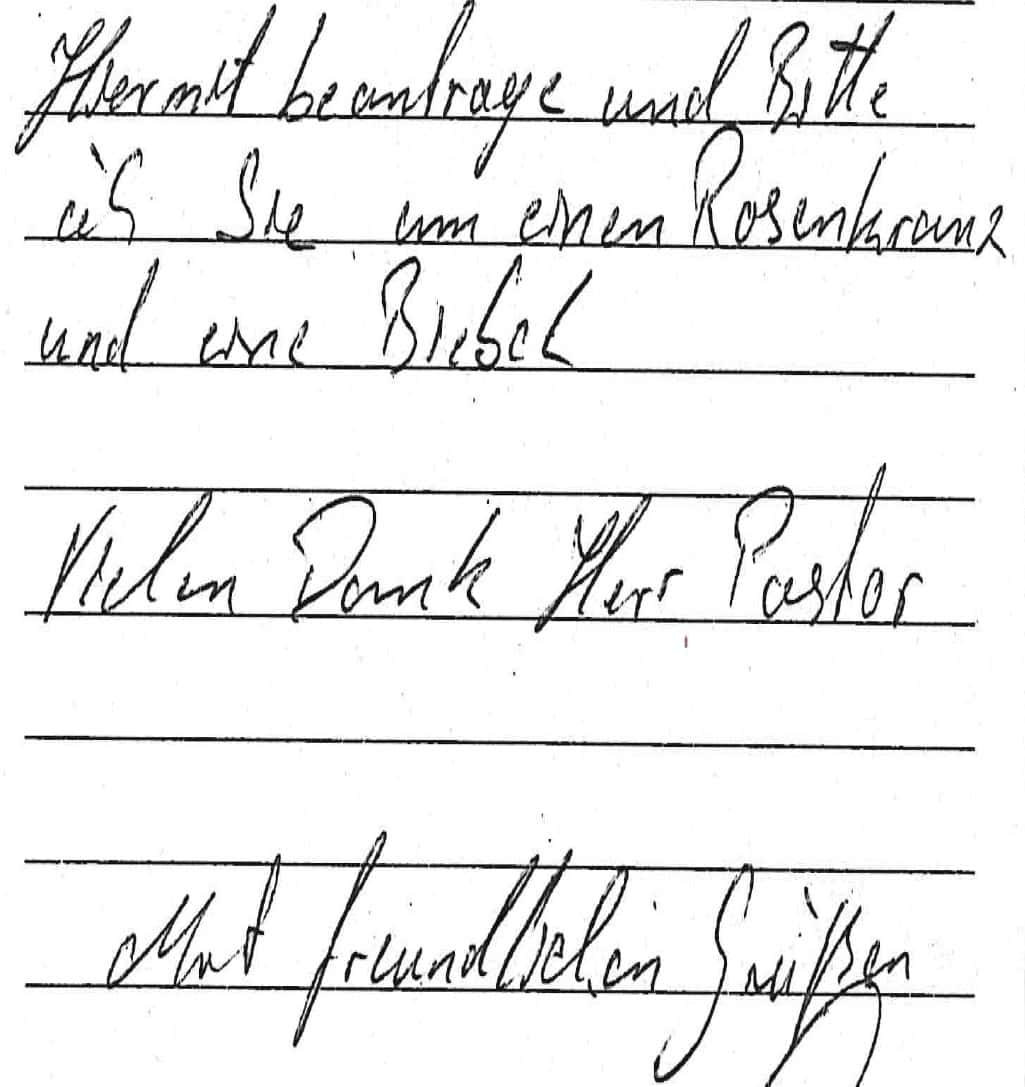 Hiermit beantrage und Bitte
ich Sie um einen Rosenkranz
und eine Biebel
Vielen Dank Herr Pastor
Mit freundlichen Grüßen